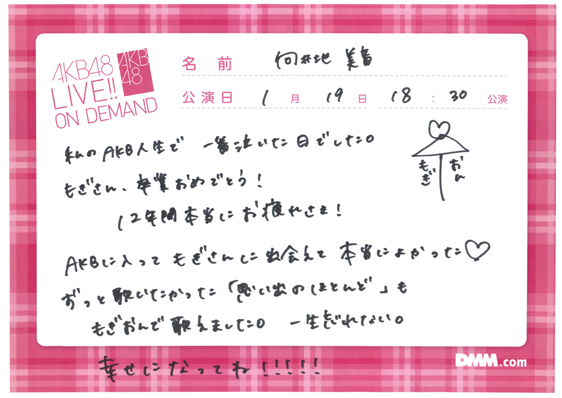 AKB48
LIVE!!
ON DEMAND
AKB
48
名前 向井地 美音
公演日 1月19日 18:30 公演
私のAKB人生で 一番泣いた日でした。
もぎさん、卒業おめでとう!
12年間本当にお疲れさま!
もぎ おん
AKBに入って もぎさんに出会えて 本当によかった♡
ずっと歌いたかった「思い出のほとんど」も
もぎおんで歌えました。 一生忘れない。
幸せになってね!!!!!
DMM.com